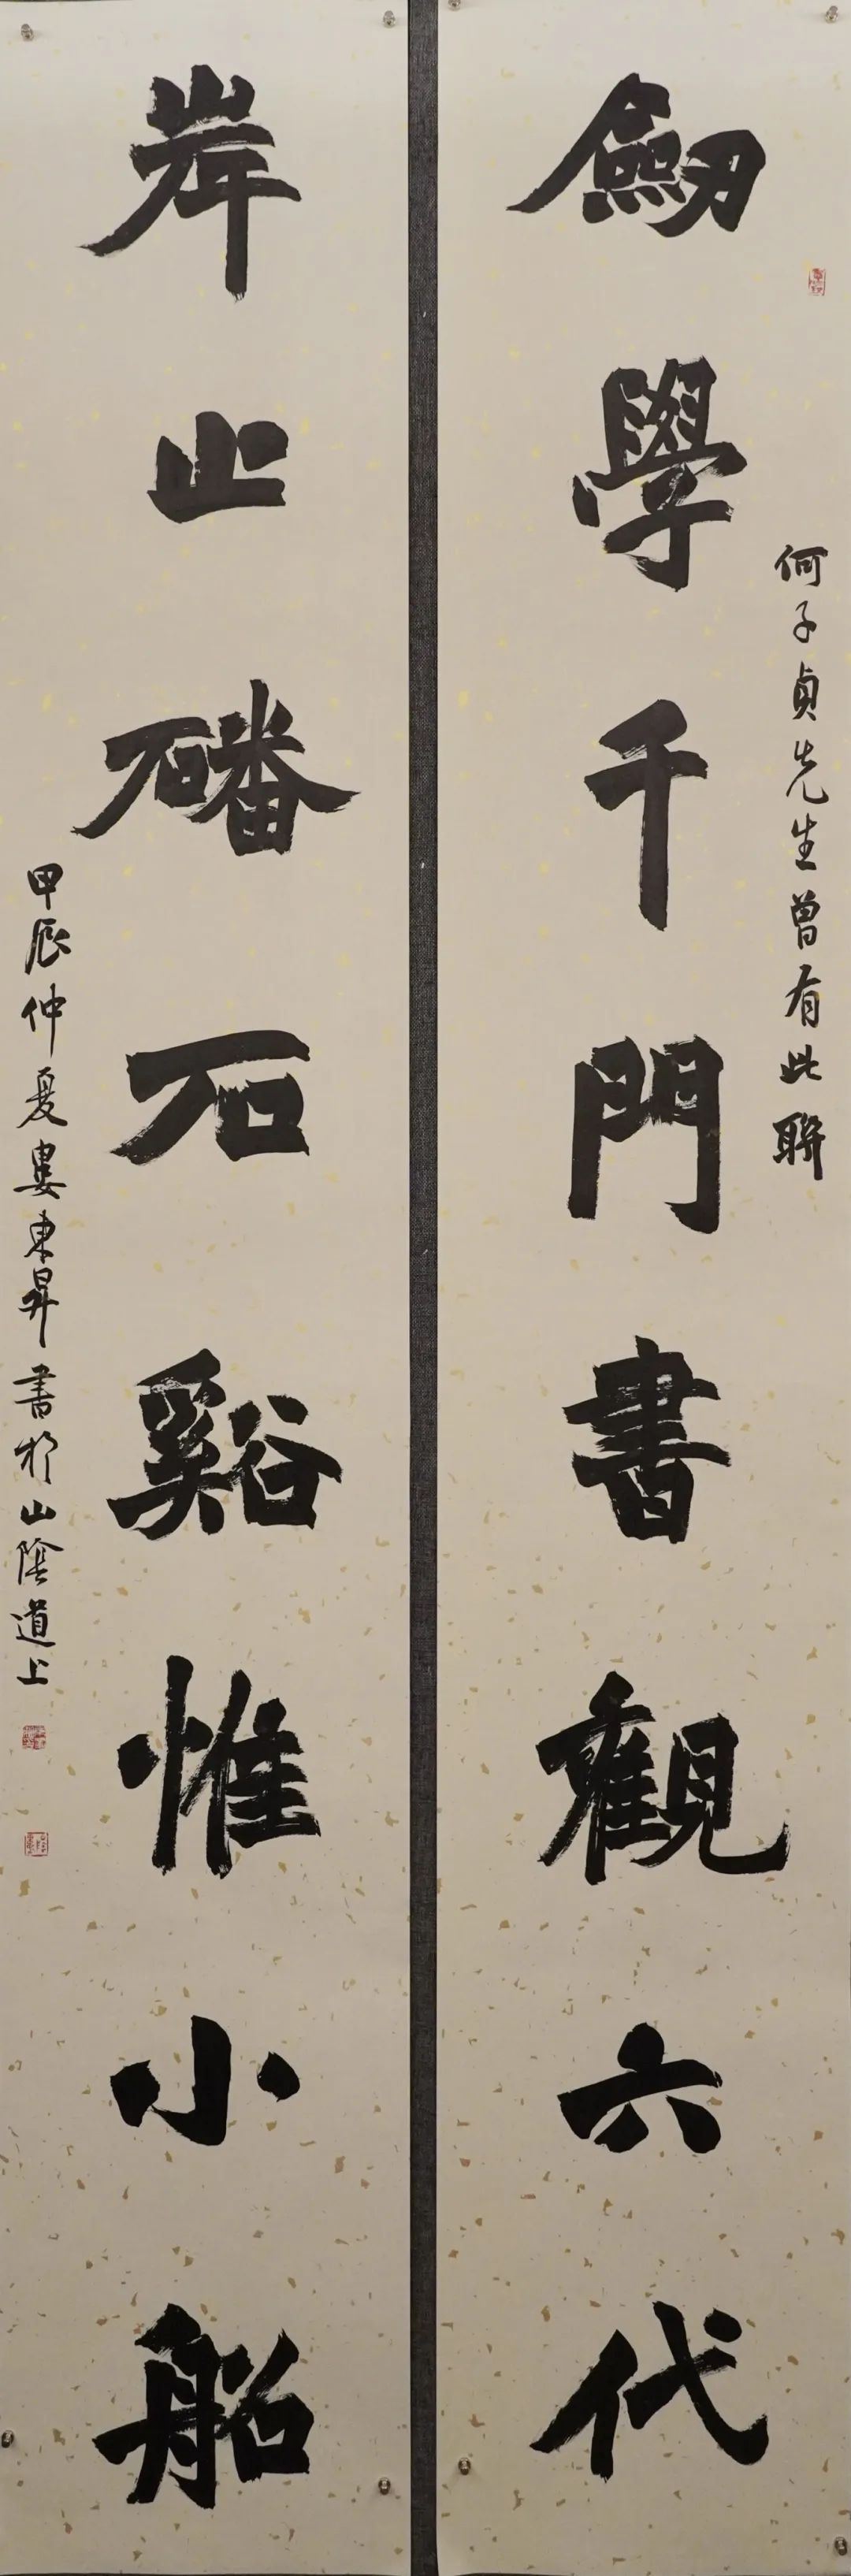 劒學千門書觀六代
何子貞先生曾有此聯
岸止磻石谿惟小船
甲辰仲夏婁東昇書於山陰道上